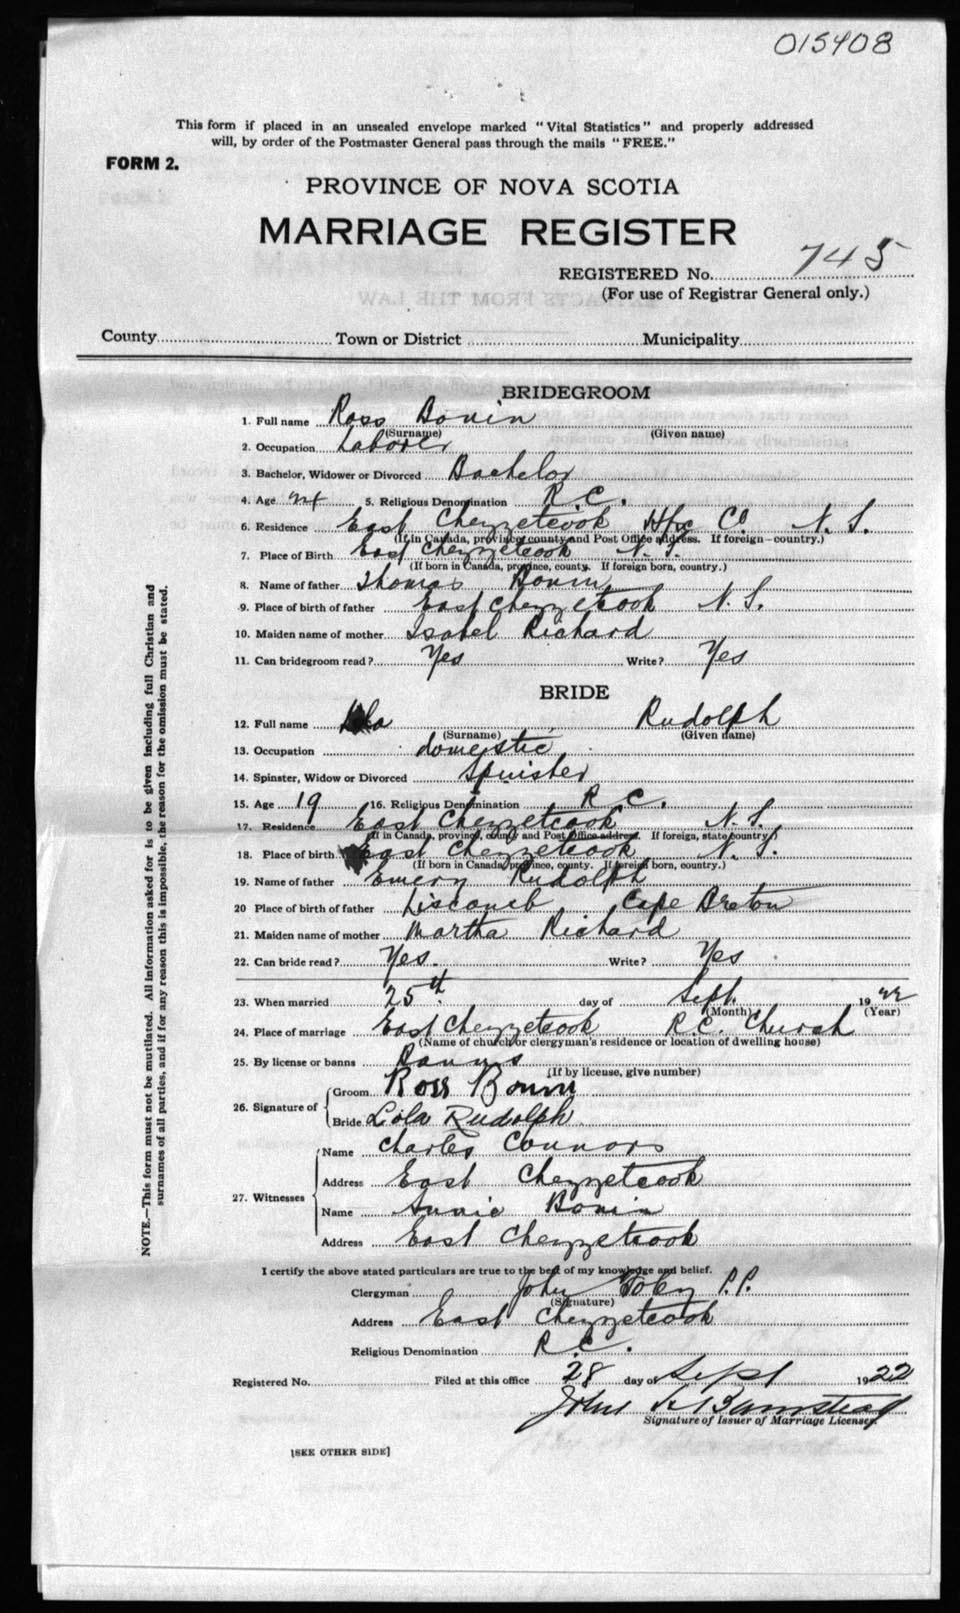 015408
This form if placed in an unsealed envelope marked "Vital Statistics" and properly addressed
will, by order of the Postmaster General pass through the mails "FREE."
FORM 2.
PROVINCE OF NOVA SCOTIA
MARRIAGE REGISTER
REGISTERED No. 745
(For use of Registrar General only.)
County Town or District Municipality
BRIDEGROOM
1. Full name Ross Bonin
(Surname) (Given name)
2. Occupation Laborer
3. Bachelor, Widower or Divorced Bachelor
4. Age 24 5. Religious Denomination R.C.
6. Residence East Chezzetcook Hfx Co. N.S.
(If in Canada, province, county and Post Office address. If foreign—country.)
7. Place of Birth East Chezzetcook N.S.
(If born in Canada, province, county. If foreign born, country.)
8. Name of father Thomas Bonin
9. Place of birth of father East Chezzetcook N.S.
10. Maiden name of mother Isabel Richard
11. Can bridegroom read? Yes Write? Yes
BRIDE
12. Full name Lola Rudolph
(Surname) (Given name)
13. Occupation domestic
14. Spinster, Widow or Divorced Spinster
15. Age 19 16. Religious Denomination R C.
17. Residence East Chezzetcook N.S.
(If in Canada, province, county and Post Office address. If foreign, state country.)
18. Place of birth East Chezzetcook N.S.
(If born in Canada, province, county. If foreign born, country.)
19. Name of father Emery Rudolph
20 Place of birth of father Liscomb Cape Breton
21. Maiden name of mother Martha Richard
22. Can bride read? Yes. Write? Yes
23. When married 25th day of Sept. 1922
(Month) (Year)
24. Place of marriage East Chezzetcook R.C. Church
(Name of church or clergyman's residence or location of dwelling house)
25. By license or banns Banns
(If by license, give number)
26. Signature of
Groom Ross Bonin
Bride Lola Rudolph
27. Witnesses
Name Charles Connors
Address East Chezzetcook
Name Annie Bonin
Address East Chezzetcook
I certify the above stated particulars are true to the best of my knowledge and belief.
Clergyman John P.P.
(Signature)
Address East Chezzetcook
Religious Denomination R.C.
Registered No. Filed at this office 28 day of Sept 1922
John
Signature of Issuer of Marriage Licenses.
[SEE OTHER SIDE]
NOTE.—This form must not be mutilated. All information asked for is to be given including full Christian and
surnames of all parties, and if for any reason this is impossible, the reason for the omission must be stated.